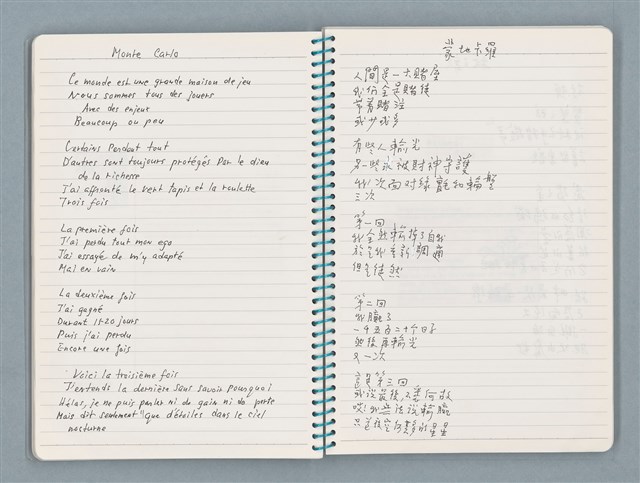 Monte Carlo
Ce monde est une grande maison de jeu
Nous sommes tous des jouers
Avec des enjeux
Beaucoup ou peu
Certains perdont tout
D'autres sont toujours protégés par le dieu
de la richesse
J'ai affronté le vert tapis et la roulette
Trois fois
La première fois
J'ai perdu tout mon ego
J'ai essayé de m'y adapté
Mais en vain
La deuxième fois
J'ai gagné
Durant 15-20 jours
Puis j'ai perdu
Encore une fois
Voici la troisième fois
J'entends la dernière sans savoir pourquoi
Hélas, je ne puis parler ni de gain ni de perte
Mais dit seulement que d'étoiles dans le ciel
nocturne
蒙地卡羅
人間是一大賭屋
我們全是賭徒
帶着賭注
或少或多
有些人輸光
另一些永被財神守護
我次面对綠氈和輪盤
三次
第一回
我全然輸掉了自我
於是我重新調適
但是徒然
第二回
我贏了
一十五至二十个日子
然後再輸光
又一次
這是第三回
或說最後,不知何故
哎!我無法說輸贏
只道夜空何多的星星